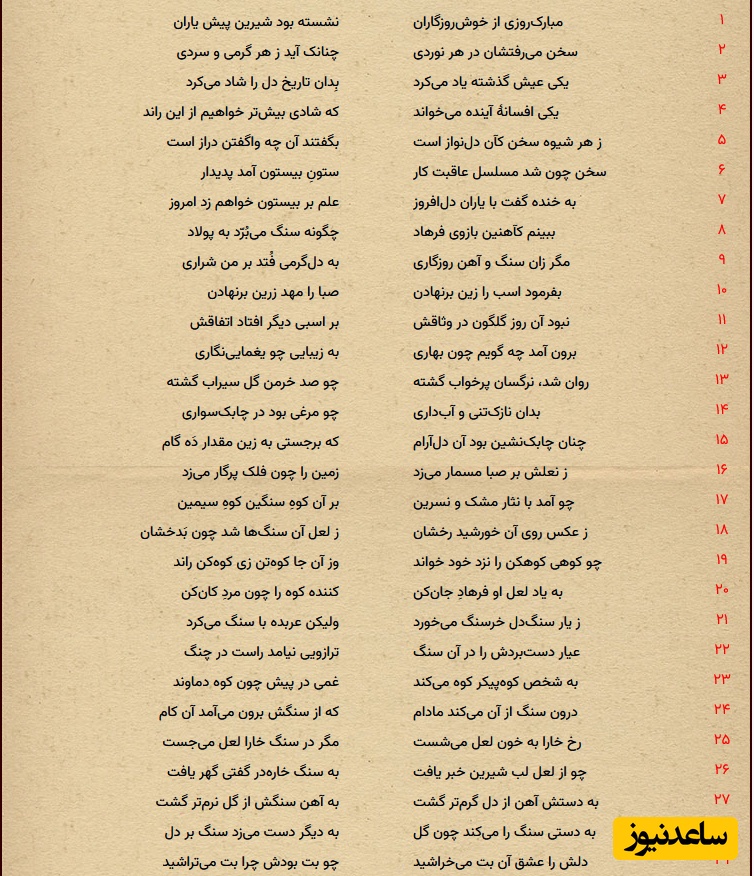 ۱ مبارک‌روزی از خوش‌روزگاران نشسته بود شیرین پیش یاران
۲ سخن می‌رفتشان در هر نوردی چنانک آید ز هر گرمی و سردی
۳ یکی عیش گذشته یاد می‌کرد بِدان تاریخ دل را شاد می‌کرد
۴ یکی افسانهٔ آینده می‌خواند که شادی بیش‌تر خواهیم از این راند
۵ ز هر شیوه سخن کآن دل‌نواز است بگفتند آن چه واگفتن دراز است
۶ سخن چون شد مسلسل عاقبت کار ستونِ بیستون آمد پدیدار
۷ به خنده گفت با یاران دل‌افروز علم بر بیستون خواهم زد امروز
۸ ببینم کآهنین بازوی فرهاد چگونه سنگ می‌بُرّد به پولاد
۹ مگر زان سنگ و آهن روزگاری به دل‌گرمی فُتد بر من شراری
۱۰ بفرمود اسب را زین برنهادن صبا را مهد زرین برنهادن
۱۱ نبود آن روز گلگون در وثاقش بر اسبی دیگر افتاد اتفاقش
۱۲ برون آمد چه گویم چون بهاری به زیبایی چو یغمایی‌نگاری
۱۳ روان شد، نرگسان پرخواب گشته چو صد خرمن گل سیراب گشته
۱۴ بدان نازک‌تنی و آب‌داری چو مرغی بود در چابک‌سواری
۱۵ چنان چابک‌نشین بود آن دل‌آرام که برجستی به زین مقدار دَه گام
۱۶ ز نعلش بر صبا مسمار می‌زد زمین را چون فلک پرگار می‌زد
۱۷ چو آمد با نثار مشک و نسرین بر آن کوهِ سنگین کوهِ سیمین
۱۸ ز عکس روی آن خورشید رخشان ز لعل آن سنگ‌ها شد چون بَدخشان
۱۹ چو کوهی کوهکن را نزد خود خواند وز آن جا کوه‌تن زی کوه‌کن راند
۲۰ به یاد لعل او فرهادِ جان‌کن کننده کوه را چون مردِ کان‌کن
۲۱ ز یار سنگ‌دل خرسنگ می‌خورد ولیکن عربده با سنگ می‌کرد
۲۲ عیار دست‌بردش را در آن سنگ ترازویی نیامد راست در چنگ
۲۳ به شخص کوه‌پیکر کوه می‌کند غمی در پیش چون کوه دماوند
۲۴ درون سنگ از آن می‌کند مادام که از سنگش برون می‌آمد آن کام
۲۵ رخ خارا به خون لعل می‌شست مگر در سنگ خارا لعل می‌جست
۲۶ چو از لعل لب شیرین خبر یافت به سنگ خاره‌در گفتی گهر یافت
۲۷ به دستش آهن از دل گرم‌تر گشت به آهن سنگش از گل نرم‌تر گشت
به دستی سنگ را می‌کند چون گل به دیگر دست می‌زد سنگ بر دل
دلش را عشق آن بت می‌خراشید چو بت بودش چرا بت می‌تراشید
ساعدنیوز